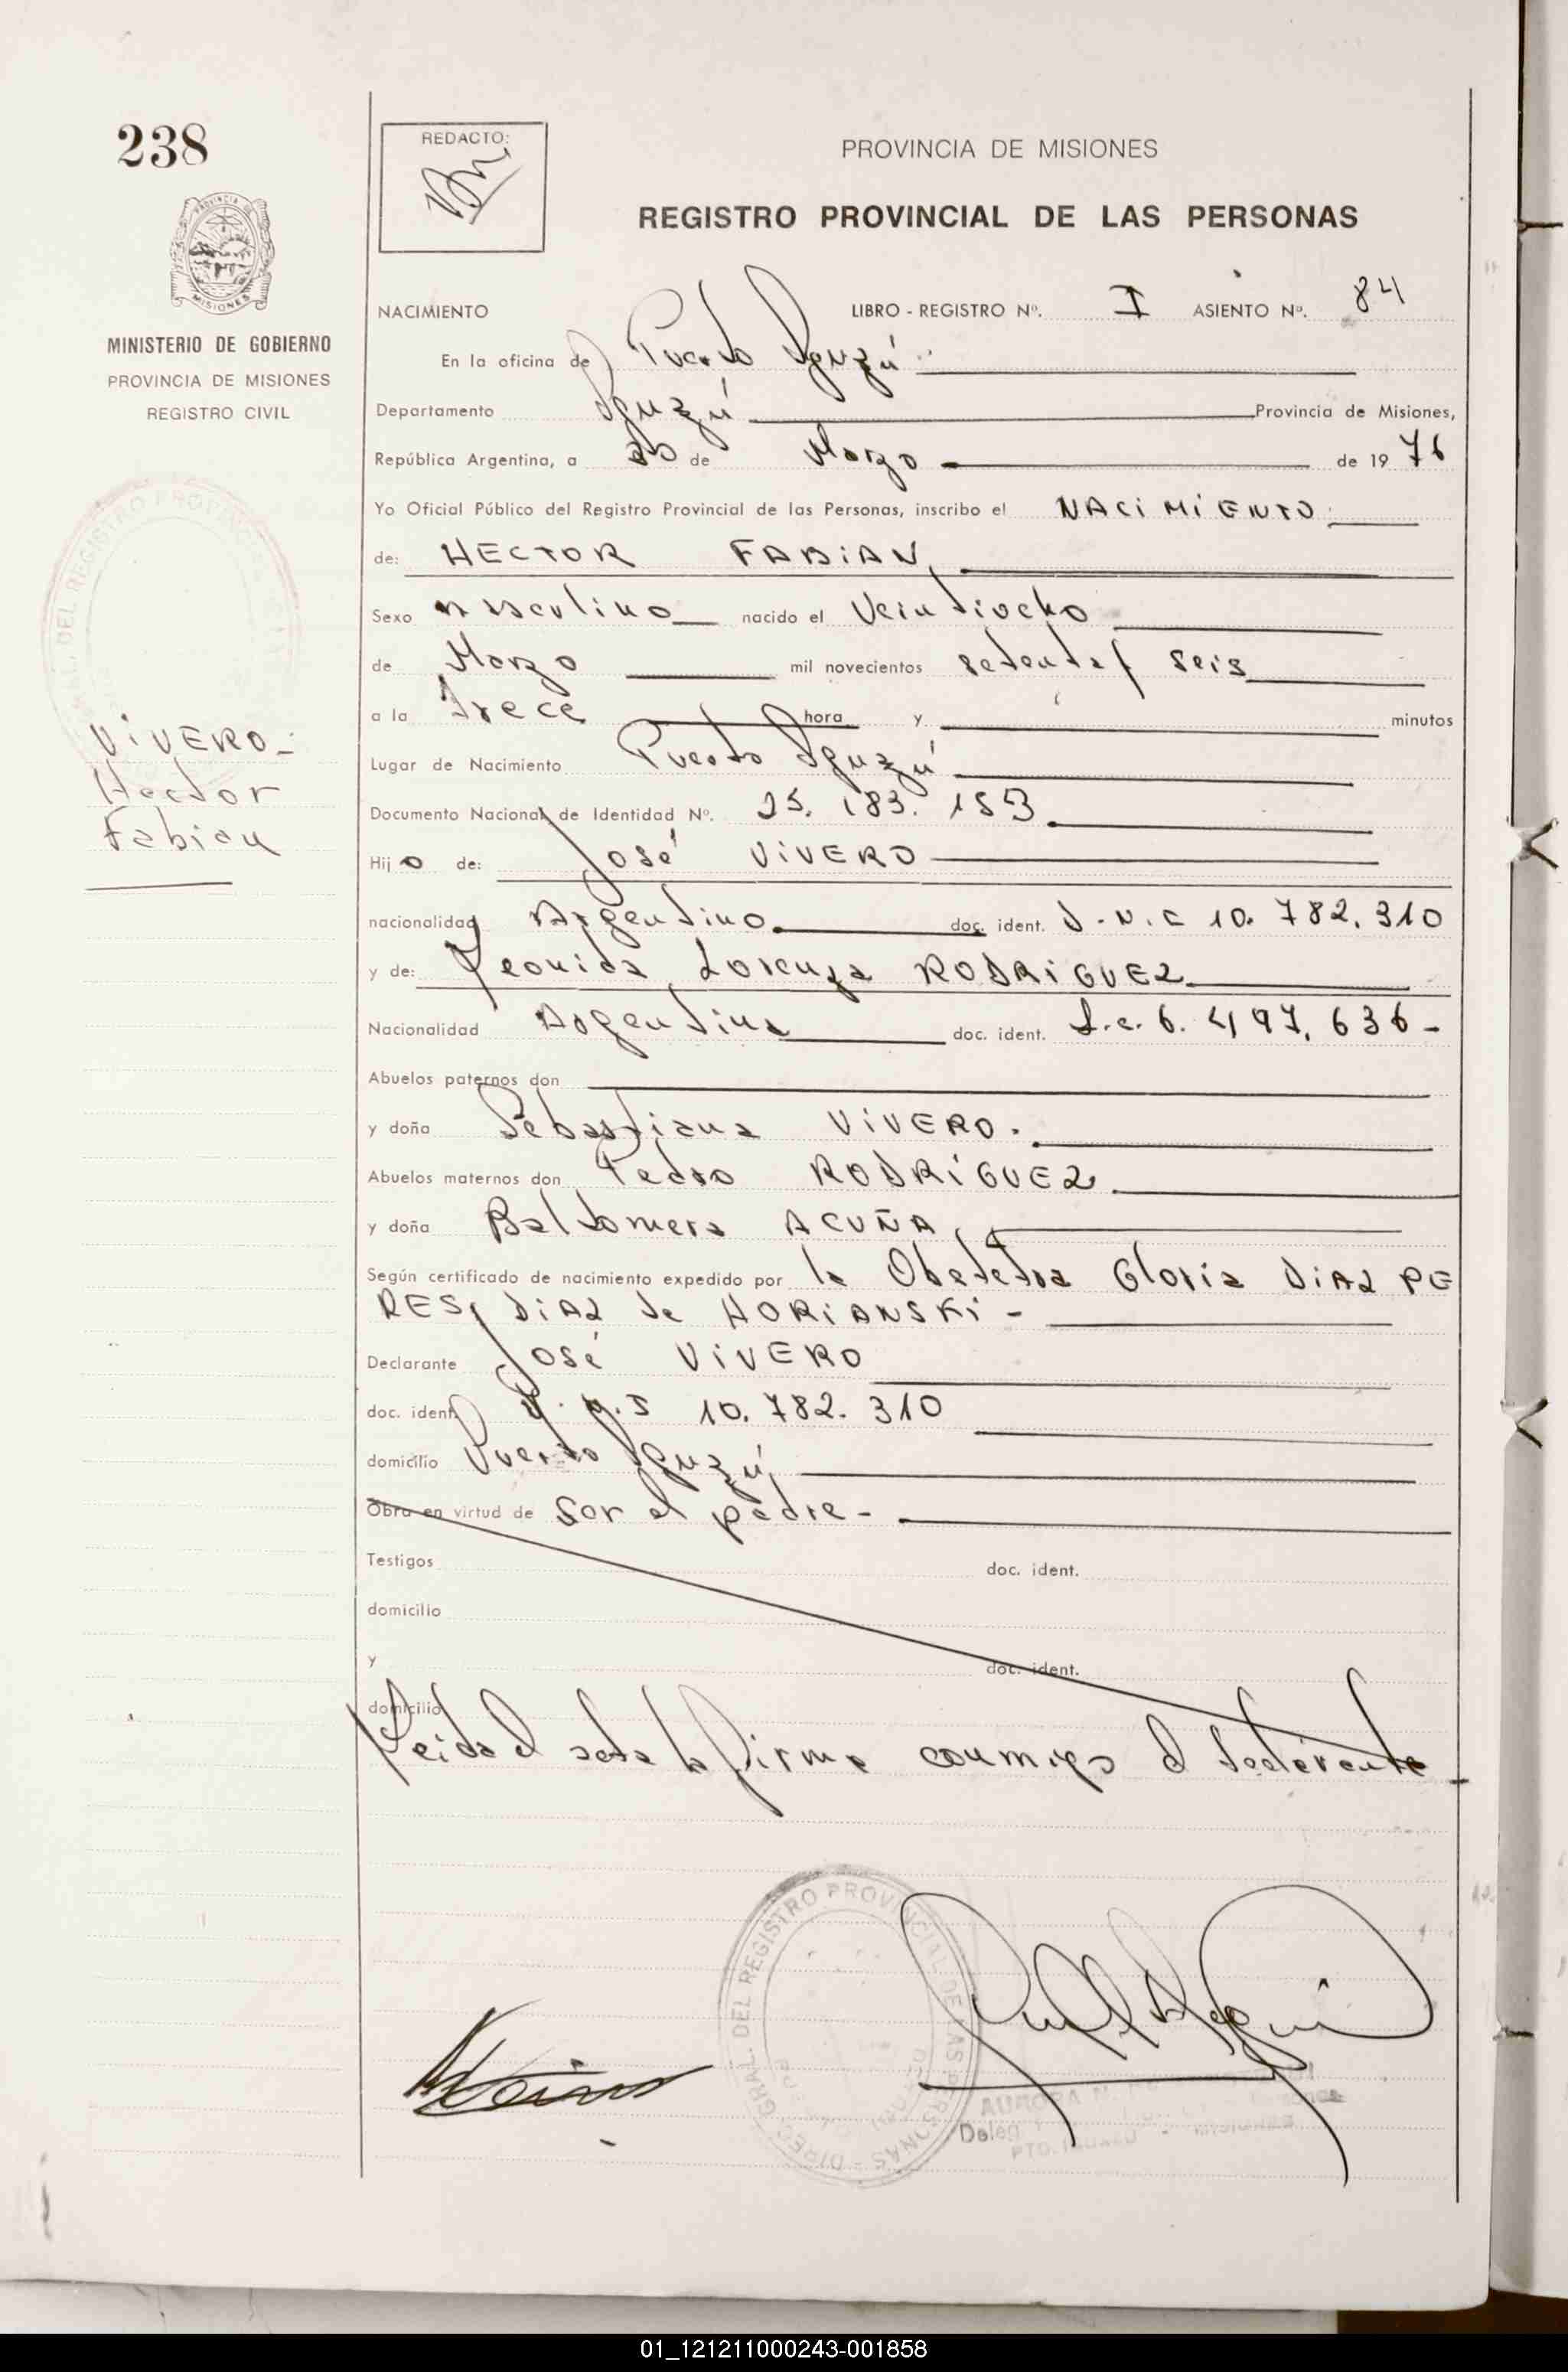 238
REDACTO:
PROVINCIA DE MISIONES
REGISTRO PROVINCIAL DE LAS PERSONAS
MISIONES
MINISTERIO DE GOBIERNO
PROVINCIA DE MISIONES
REGISTRO CIVIL
NACIMIENTO LIBRO - REGISTRO Nº. I ASIENTO Nº. 84
En la oficina de Puerto Iguazú
Departamento Iguazú Provincia de Misiones,
República Argentina, a 30 de Marzo de 1976
Yo Oficial Público del Registro Provincial de las Personas, inscribo el NACIMIENTO
de: HECTOR FABIAN
Sexo masculino nacido el Veintiocho
de Marzo mil novecientos setenta y seis
a la trece hora y minutos
VIVERO-
Hector
Fabian
Lugar de Nacimiento Puerto Iguazú
Documento Nacional de Identidad Nº. 25. 183. 153
Hijo de: José VIVERO
nacionalidad Argentino doc. ident. D.N.I 10. 782. 310
y de: Leonida Lorenza RODRIGUEZ
Nacionalidad Argentina doc. ident. L.c. 6. 497. 636-
Abuelos paternos don
y doña Sebastiana VIVERO.
Abuelos maternos don Pedro RODRÍGUEZ
y doña Baldomera ACUÑA
Según certificado de nacimiento expedido por la Obstetra Gloria DIAZ PE
RES, DIAZ de HORIANSKI -
Declarante José VIVERO
doc. ident. D.N.I 10. 782. 310
domicilio Puerto Iguazú
Obra en virtud de Ser el padre-
Testigos doc. ident.
domicilio
y doc. ident.
domicilio
Leida el acta la firma conmigo el
DIREC. GRAL. DEL REGISTRO PROVINCIAL DE LAS PERSONAS
AURORA
PTO. IGUAZU - MISIONES
01_121211000243-001858